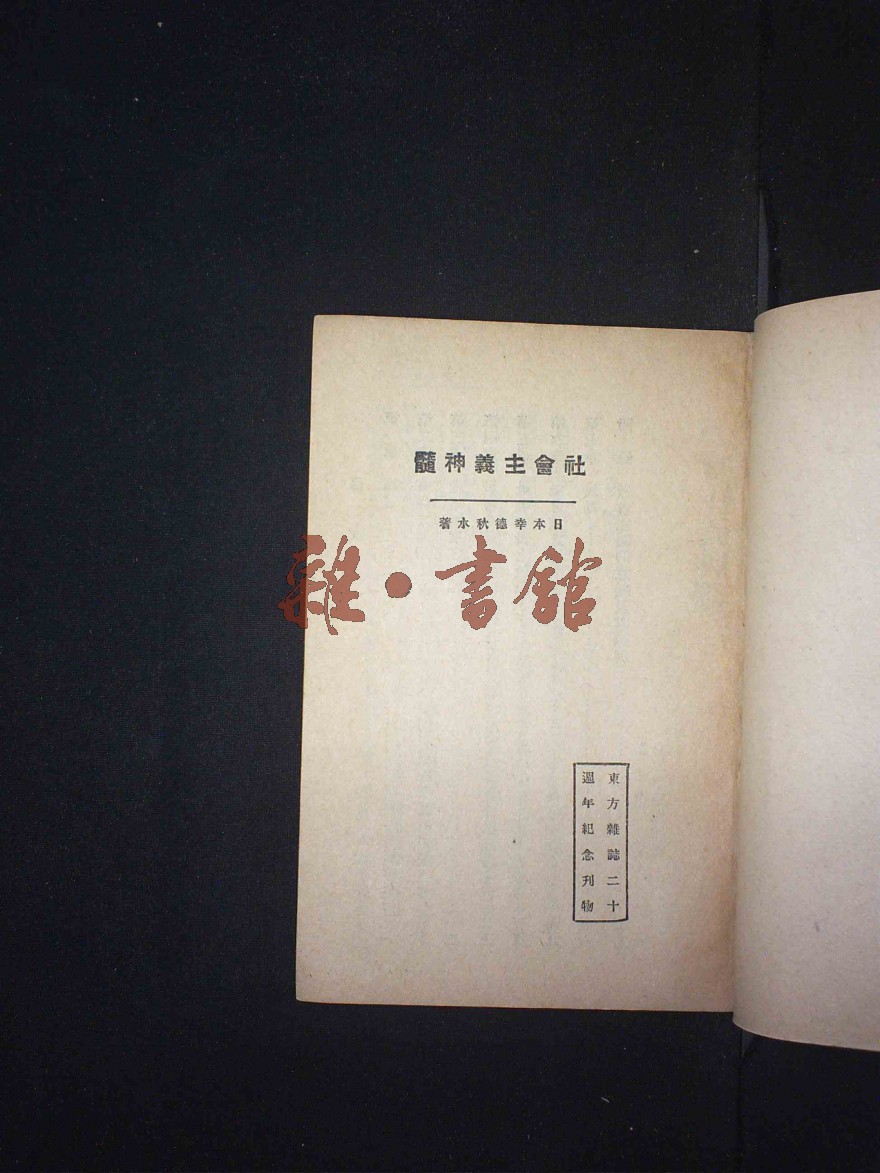 社會主義神髓
日本幸德秋水著
雜·書館
東方雜誌二十
週年紀念刊物